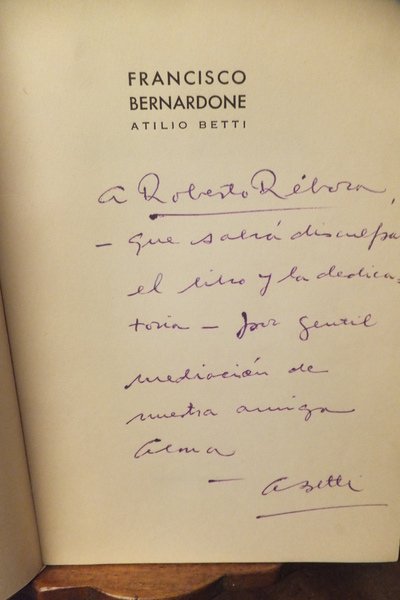 FRANCISCO
BERNARDONE
ATILIO BETTI
A Roberto Rébora,
— que sabrá disculpar
el libro y la dedica-
toria — por gentil
mediación de
nuestra amiga
Alma
— ABetti